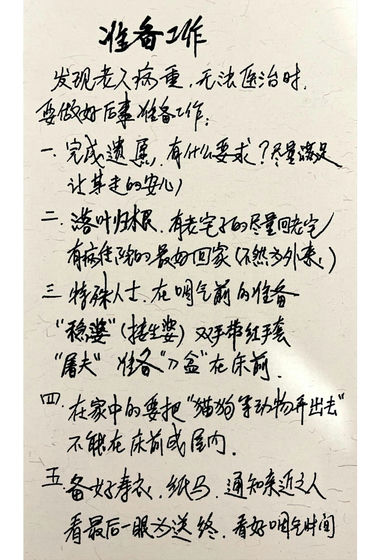 准备工作
发现老人病重，无法医治时，
要做好后事准备工作：
一、完成遗愿，有什么要求？尽量满足
让其走的安心）
二、落叶归根，有老宅子的尽量回老宅，
有病住院的最好回家（不然为外来、）
三、特殊人士，在咽气前的准备
“稳婆”（接生婆）双手带红手套
“屠夫” 准备“刀盆”在床前．
四、在家中的要把“猫狗等动物弄出去”
不能在床前或屋内．
五、备好寿衣、纸马、通知亲近之人
看最后一眼为送终，看好咽气时间